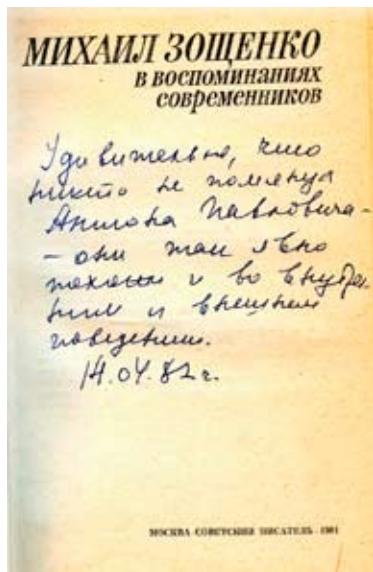 МИХАИЛ ЗОЩЕНКО
в воспоминаниях
современников
Удивительно, что
никто не помянул
Антона Павловича -
- они так явно
похожи и во внутрен
нем и внешнем
поведении.
14.04.82 г.
МОСКВА · СОВЕТСКИЙ ПИСАТЕЛЬ · 1981